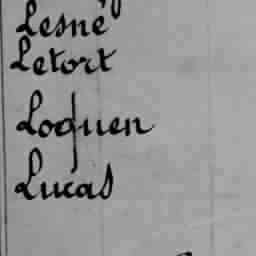 Lesné
Letort
Loquen
Lucas